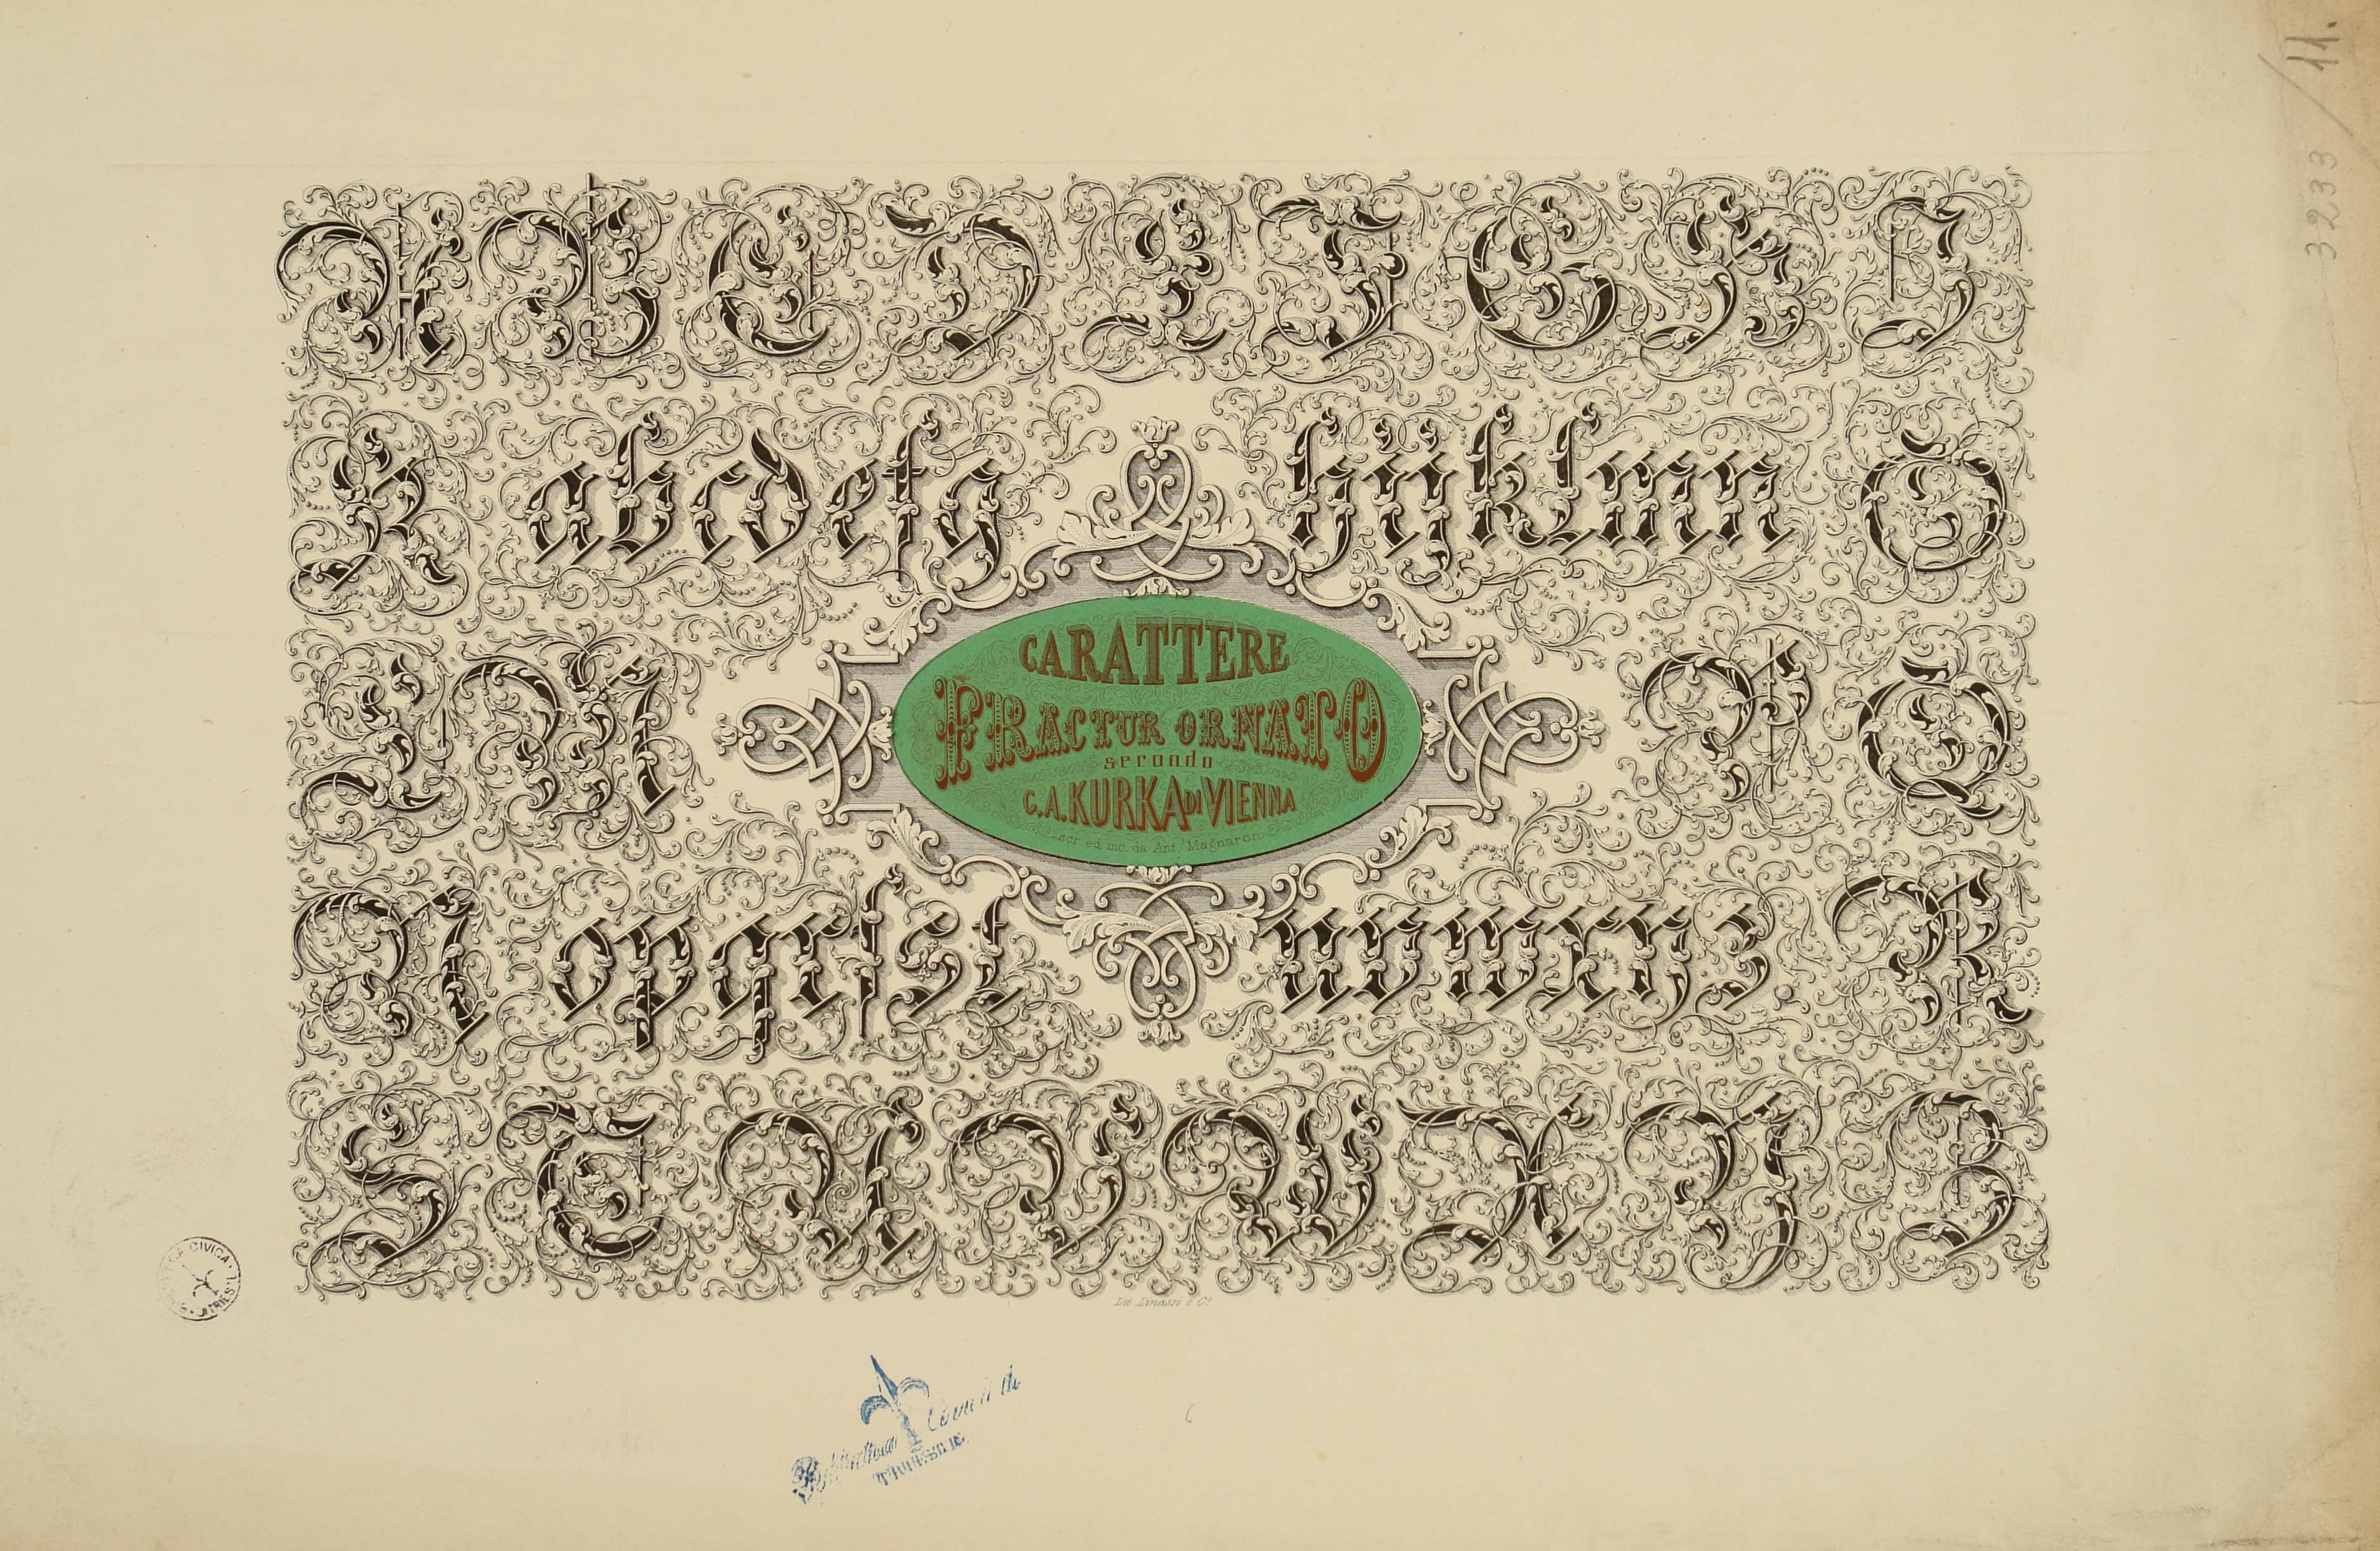 3233/11.
A B C D E F G H I
K a b c d e f g h i j k l m n O
L M
CARATTERE
FRACTUR ORNATO
secondo
C.A. KURKA DI VIENNA
scr. ed inc. da Ant.º Magnaron
P Q
N o p q r ſ s t u v w x y z R
S T U V W X Y Z
Lit. Linassi e C.º
Biblioteca Civica di
TRIESTE
CIVICA
TRIESTE